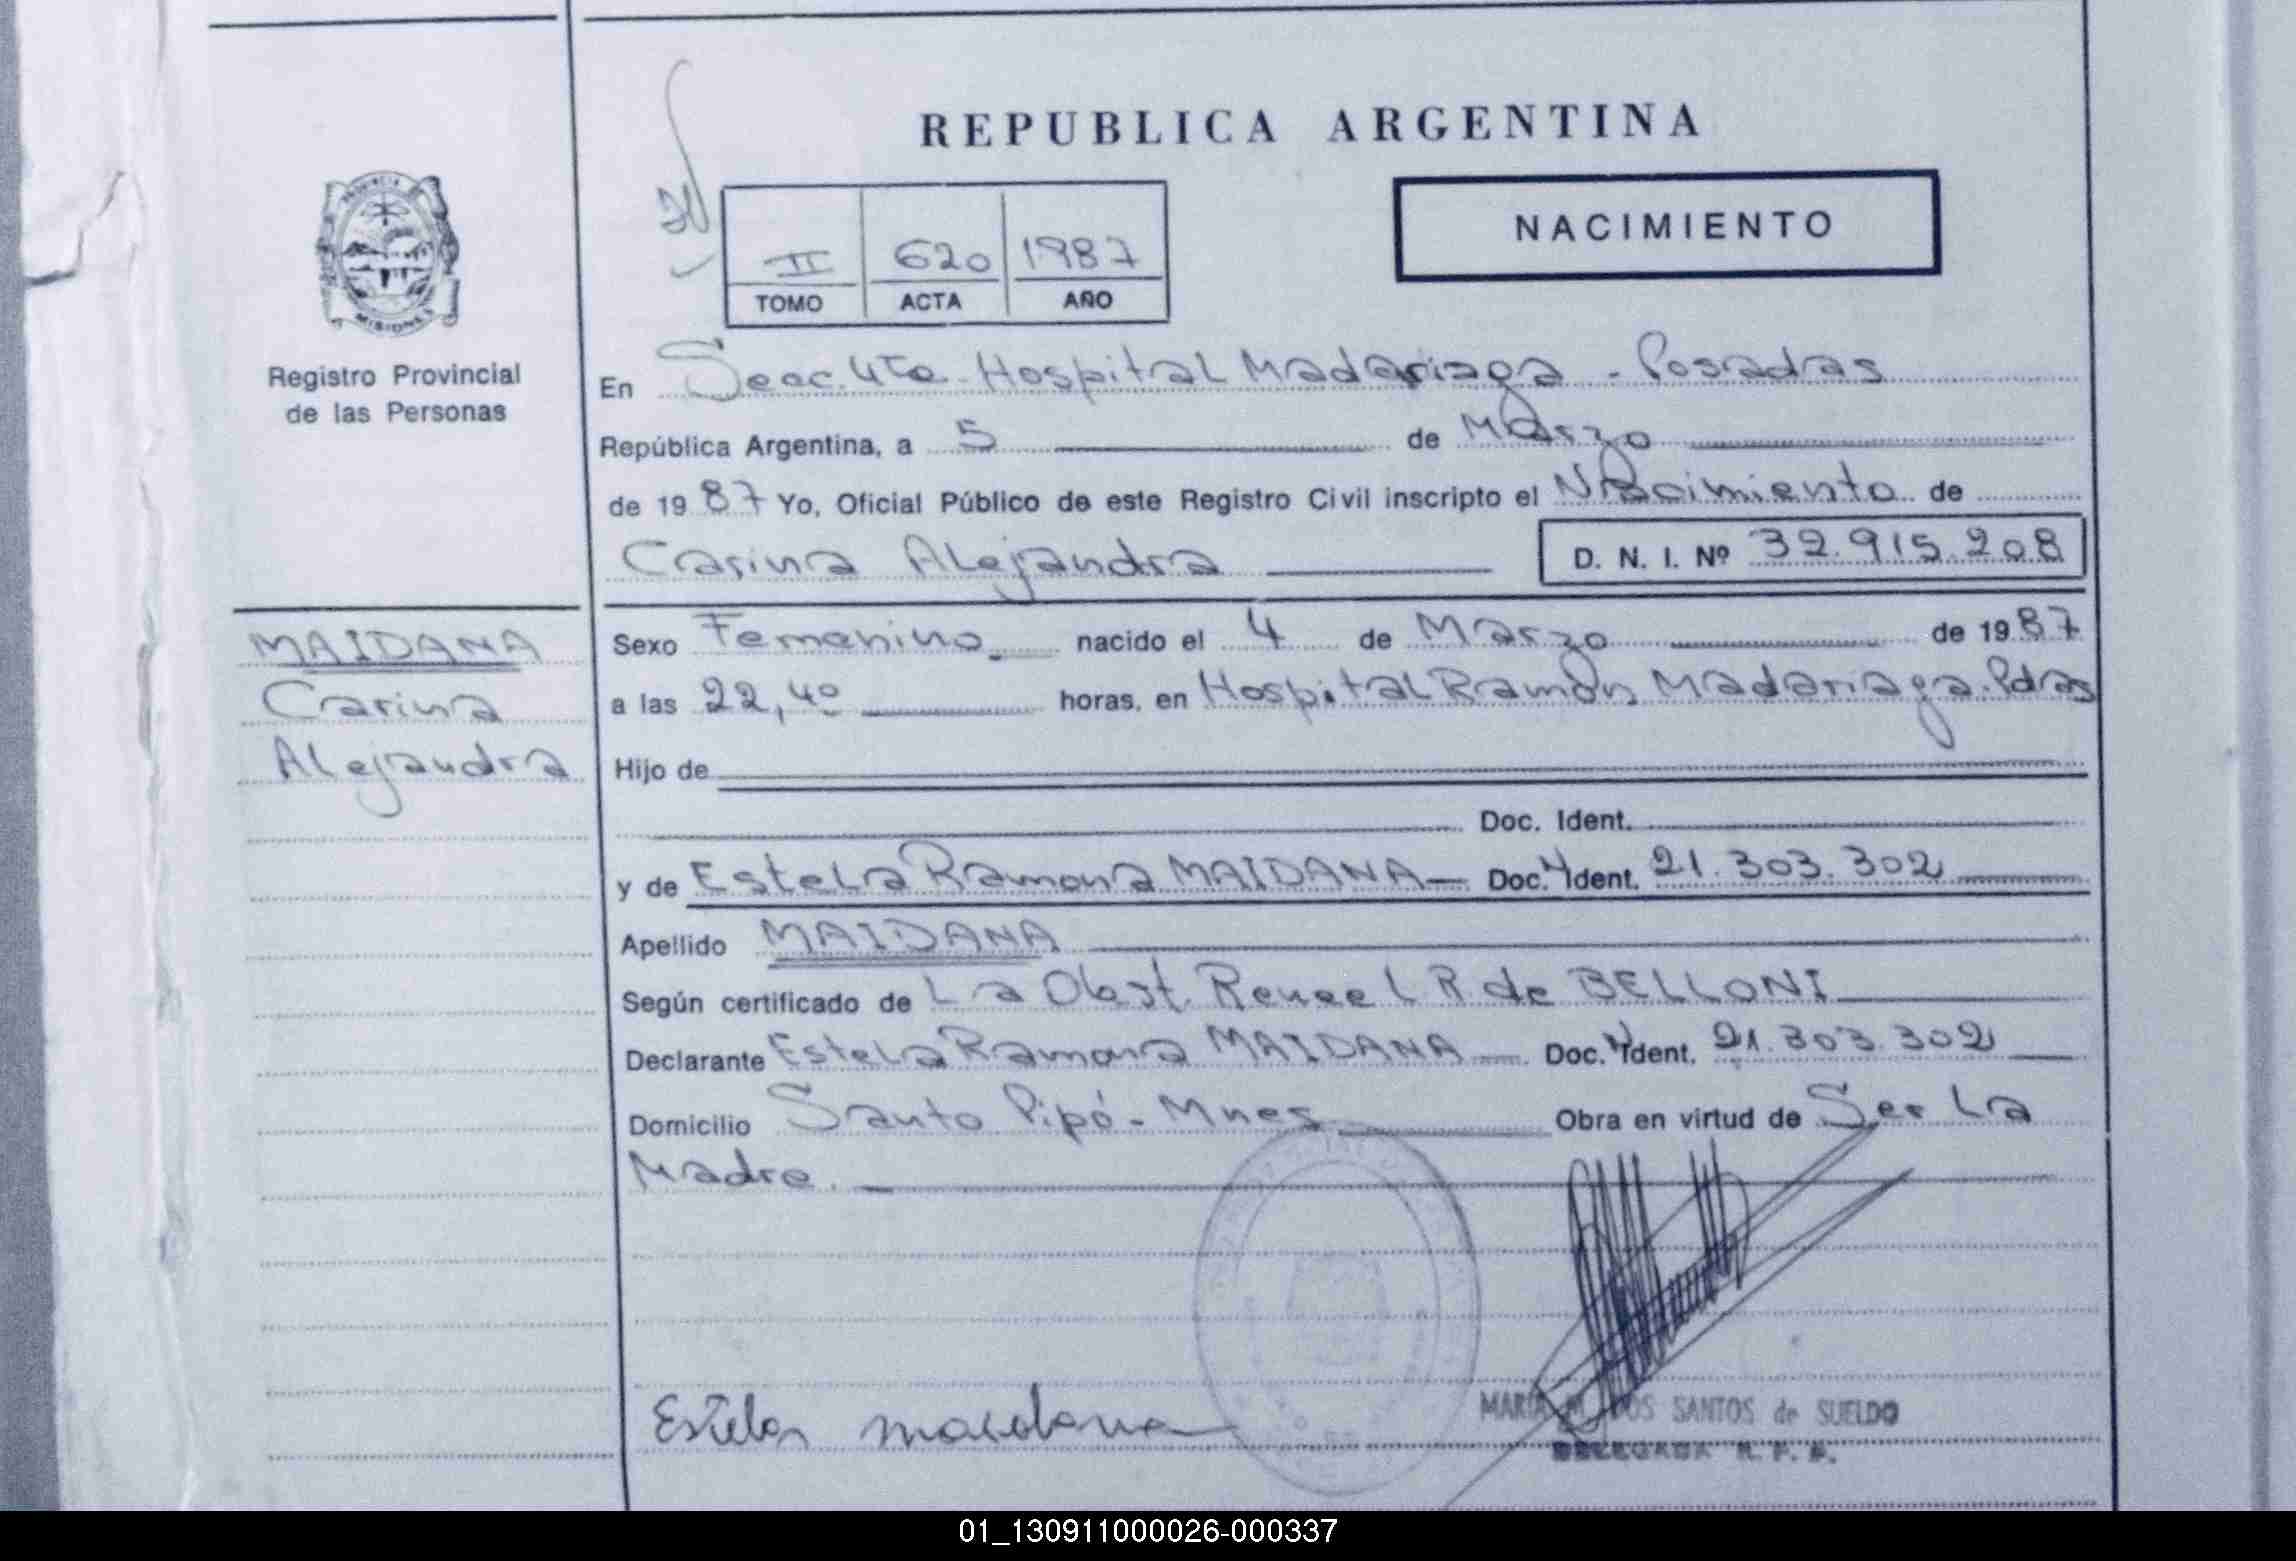 REPUBLICA ARGENTINA
NACIMIENTO
II 620 1987
TOMO ACTA AÑO
PROVINCIA
MISIONES
Registro Provincial
de las Personas
En Secc. 4ta Hospital Madariaga - Posadas
República Argentina, a 5 de Marzo
de 1987 Yo, Oficial Público de este Registro Civil inscripto el Nacimiento de
Carina Alejandra D. N. I. Nº 32.915.208
MAIDANA
Carina
Alejandra
Sexo Femenino nacido el 4 de Marzo de 1987
a las 22,40 horas, en Hospital Ramón Madariaga. Pdas
Hijo de
Doc. Ident.
y de Estela Ramona MAIDANA Doc. Ident. 21.303.302
Apellido MAIDANA
Según certificado de La Obst. Renee L R de BELLONI
Declarante Estela Ramona MAIDANA Doc. Ident. 21.303.302
Domicilio Santo Pipó - Mnes Obra en virtud de Ser La
Madre.
Estela maidana
MARIA M. DOS SANTOS de SUELDO
DELEGADA R. P. P.
01_130911000026-000337